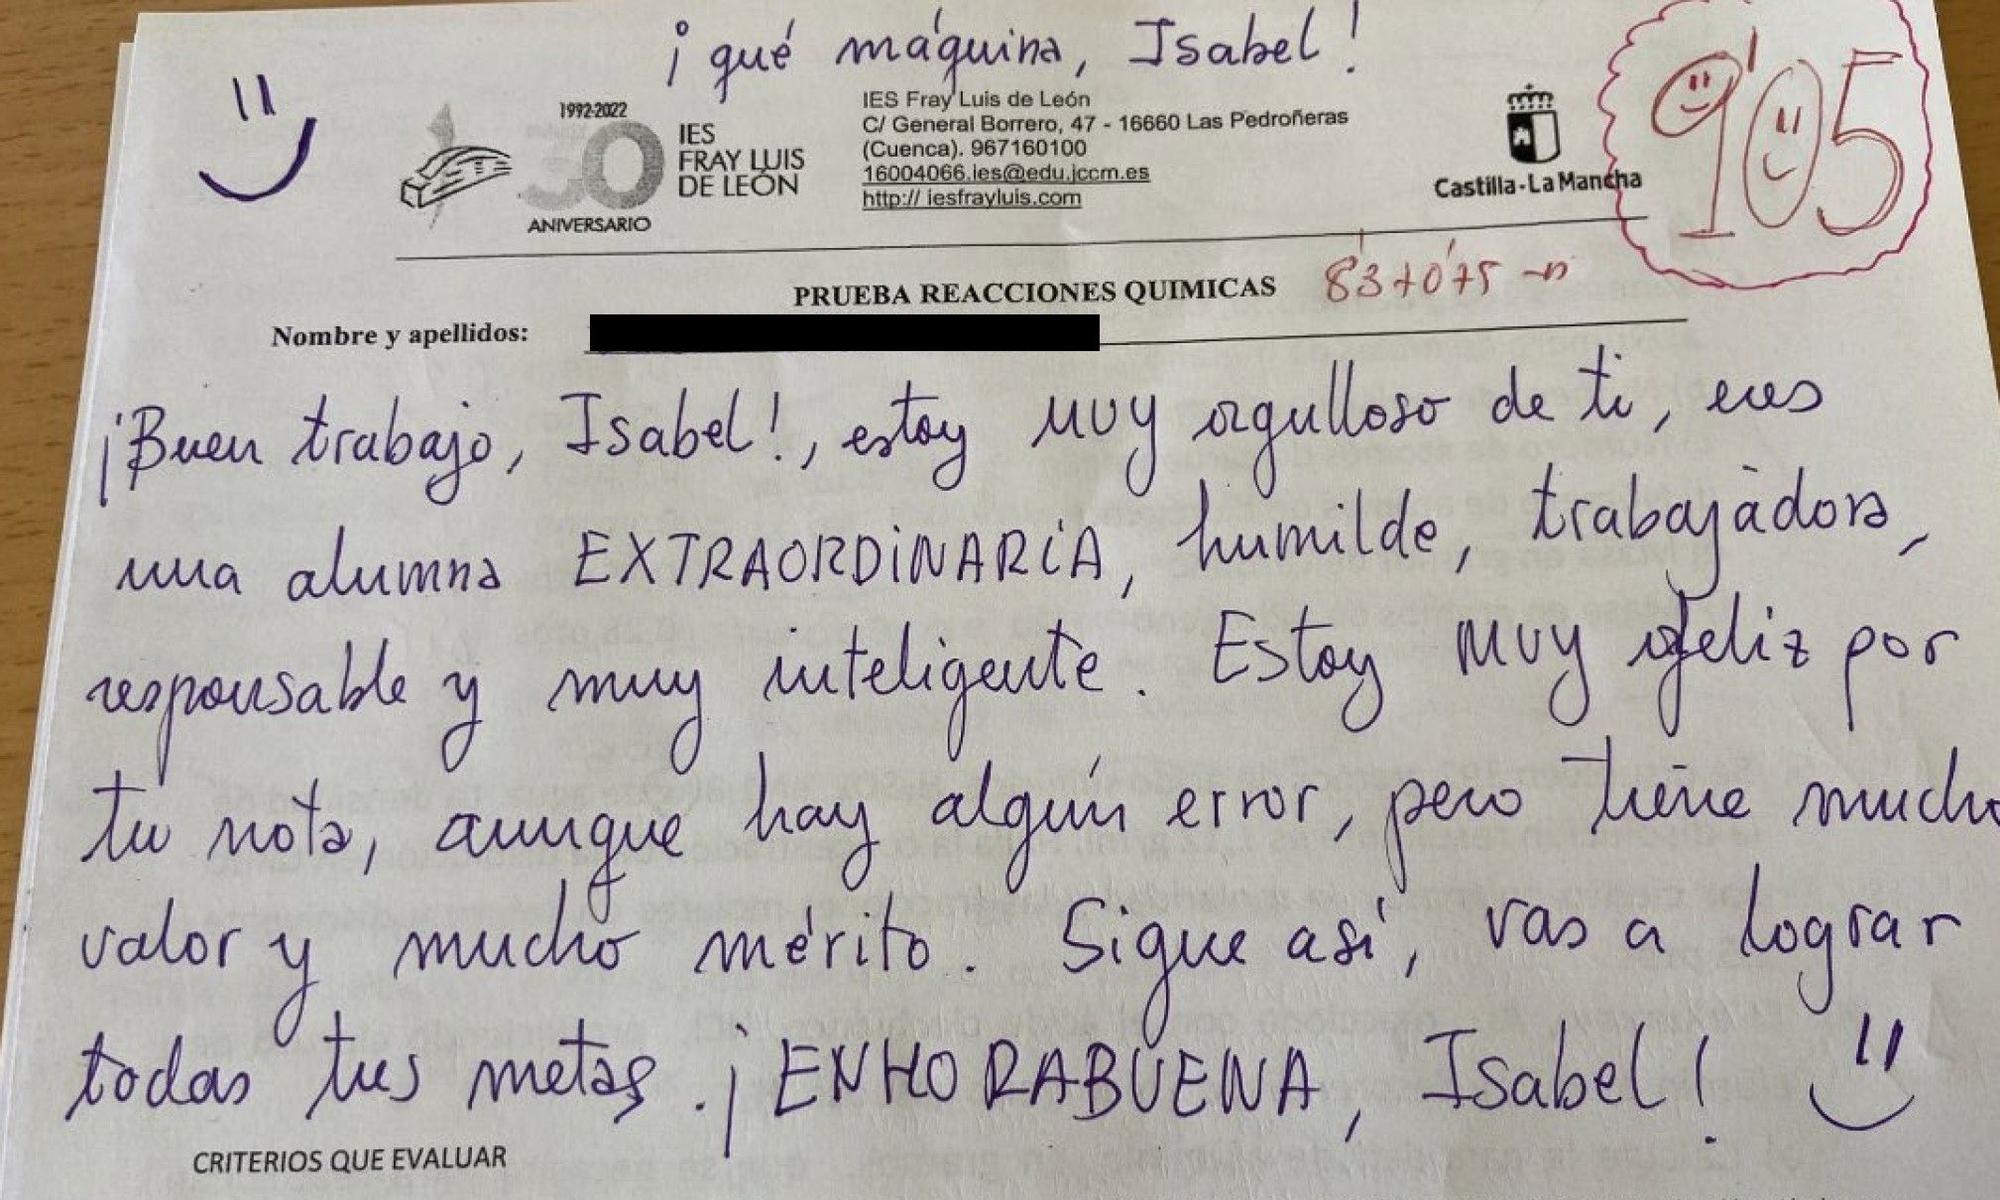 ¡qué máquina, Isabel!
9'05
1992-2022
30
ANIVERSARIO
IES
FRAY LUIS
DE LEÓN
IES Fray Luis de León
C/ General Borrero, 47 - 16660 Las Pedroñeras
(Cuenca). 967160100
16004066.ies@edu.jccm.es
http:// iesfrayluis.com
Castilla-La Mancha
PRUEBA REACCIONES QUIMICAS 8'3+0'75
Nombre y apellidos:
¡Buen trabajo, Isabel!, estoy MUY orgulloso de ti, eres
una alumna EXTRAORDINARIA, humilde, trabajadora,
responsable y muy inteligente. Estoy MUY feliz por
tu nota, aunque hay algún error, pero tiene mucho
valor y mucho mérito. Sigue así, vas a lograr
todas tus metas. ¡ENHORABUENA, Isabel!
CRITERIOS QUE EVALUAR